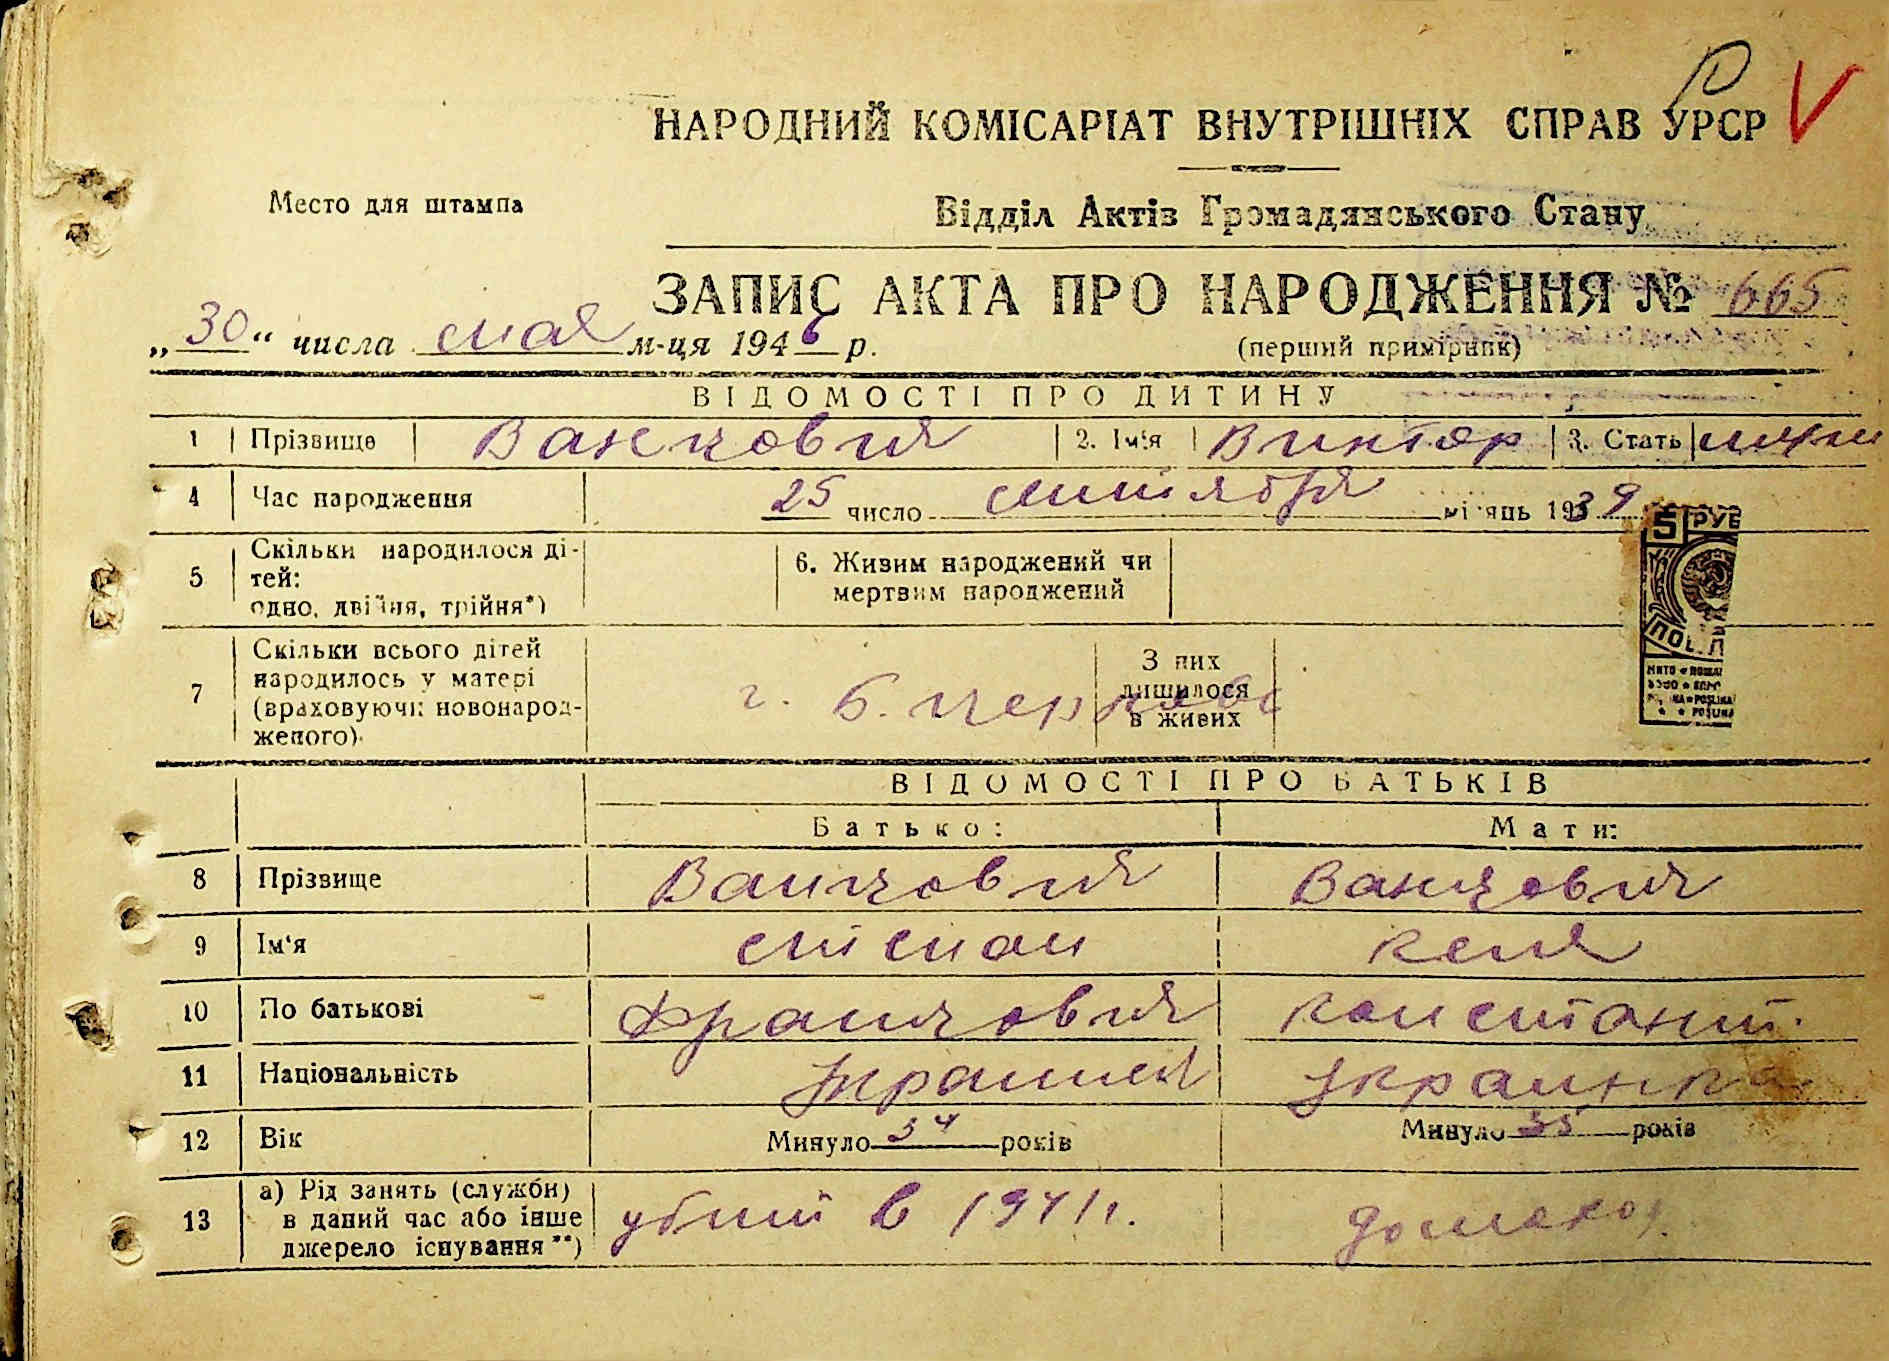 НАРОДНИЙ КОМІСАРІАТ ВНУТРІШНІХ СПРАВ УРСР
Место для штампа
Відділ Актів Громадянського Стану
ЗАПИС АКТА ПРО НАРОДЖЕННЯ № 665
„30" числа мая м-ця 1946 р.
(перший примірник)
ВІДОМОСТІ ПРО ДИТИНУ
1 Прізвище Ванцович 2. Ім'я Виктор 3. Стать муж
4 Час народження 25 число сентября місяць 1939
5 Скільки народилося ді-
тей:
одно, двійня, трійня*)
6. Живим народжений чи
мертвим народжений
7 Скільки всього дітей
народилось у матері
(враховуючи новонарод-
женого)
г. Б. Церковь
З них
лишилося
в живих
5 РУБ
ВІДОМОСТІ ПРО БАТЬКІВ
Батько: Мати:
8 Прізвище Ванцович Ванцович
9 Ім'я Степан
10 По батькові Францович Констант.
11 Національність Украинец Украинка
12 Вік Минуло 34 років Минуло 35 років
13 а) Рід занять (служби)
в даний час або інше
джерело існування**)
убит в 1941 г. домохоз.